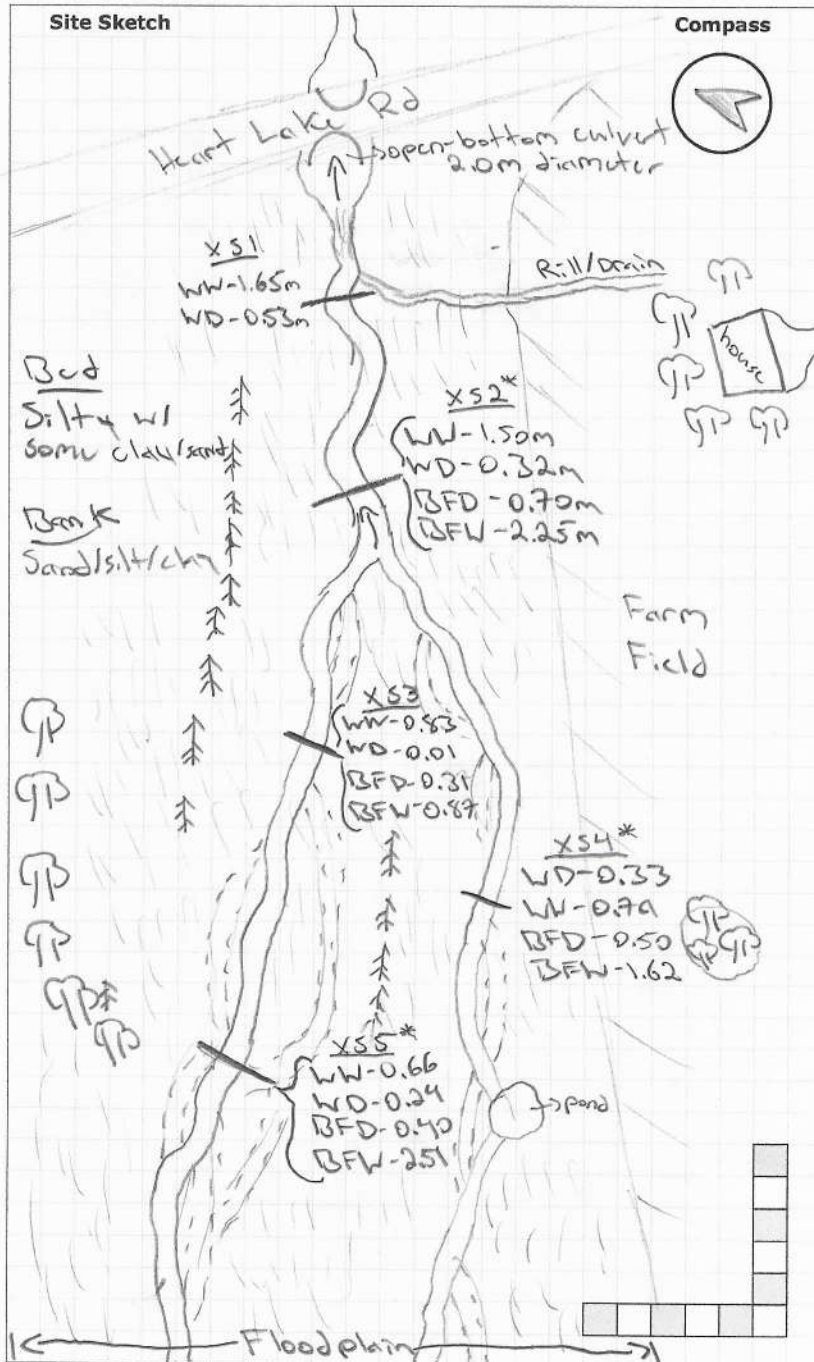 Site Sketch
Compass
Heart Lake Rd
open-bottom culvert
2.0m diameter
XS1
WW-1.65m
WD-0.53m
Rill/Drain
house
Bed
Silty w/
some clay/sand
Bank
Sand/silt/clay
XS2*
WW-1.50m
WD-0.32m
BFD-0.70m
BFW-2.25m
Farm
Field
XS3
WW-0.83
WD-0.01
BFD-0.31
BFW-0.87
XS4*
WD-0.33
WW-0.79
BFD-0.50
BFW-1.62
XS5*
WW-0.66
WD-0.24
BFD-0.40
BFW-2.51
pond
Floodplain